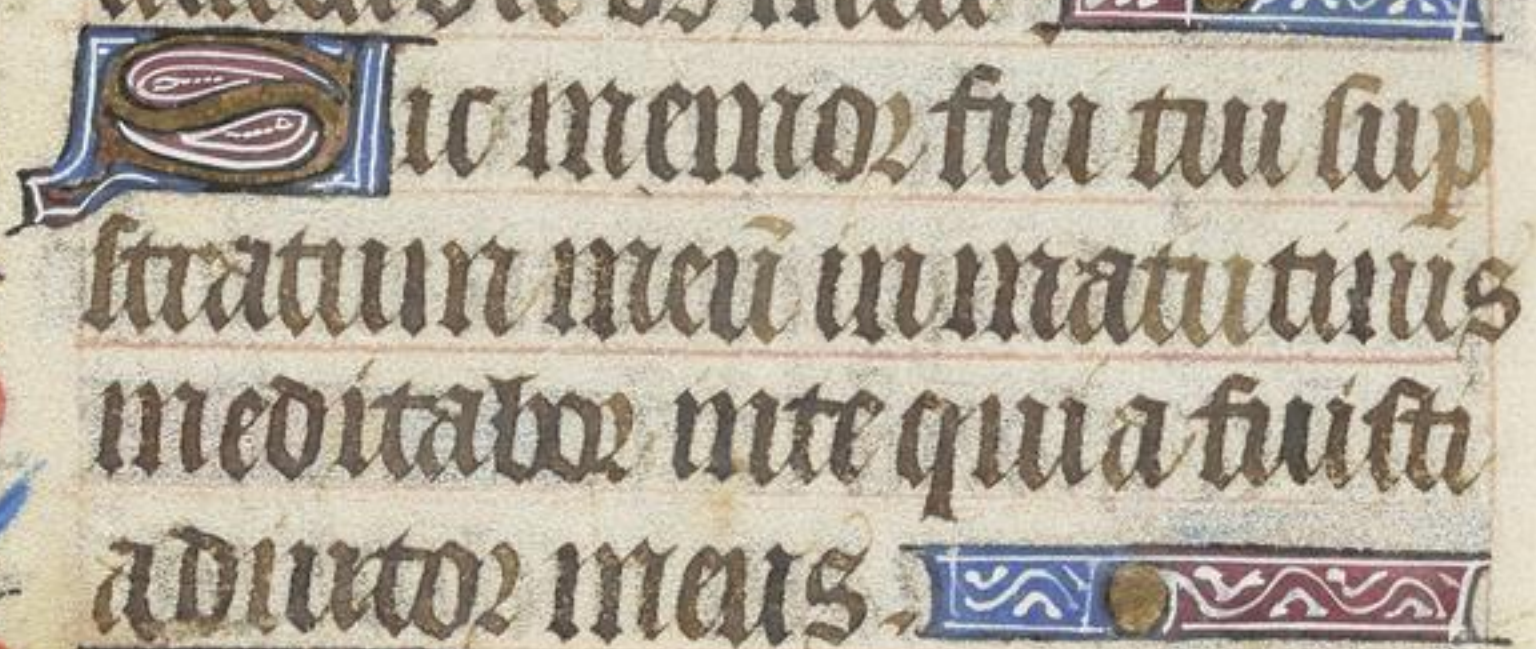 os meu
Sic memor fui tui sup
stratum meū in matutinis
meditabor in te quia fuisti
adiutor meus.